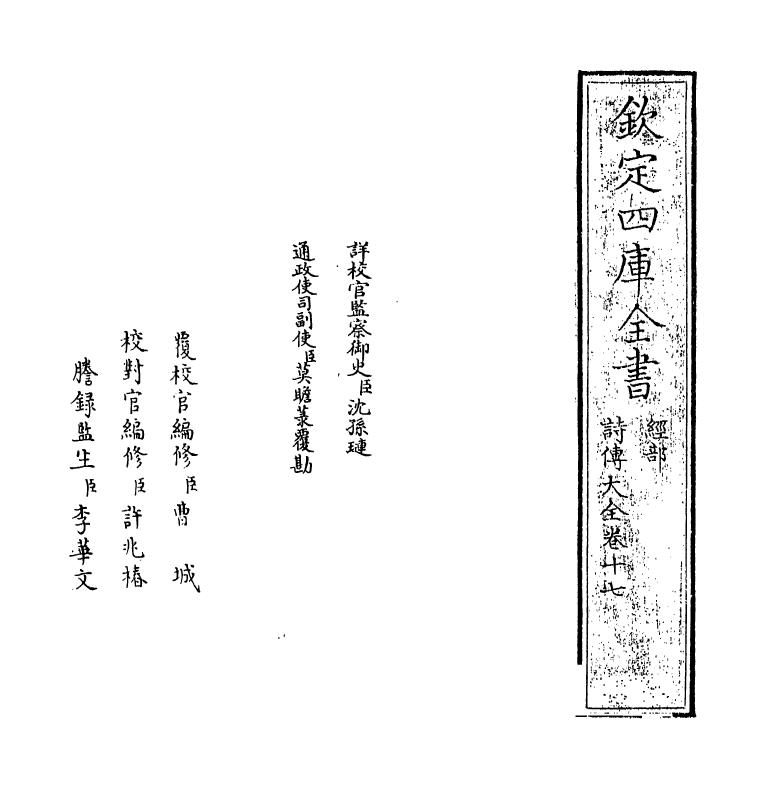 欽定四庫全書
經部
詩傳大全卷十七
詳校官監察御史臣沈孫璉
通政使司副使臣莫瞻菉覆勘
覆校官編修臣曹城
校對官編修臣許兆椿
謄録監生臣李華文